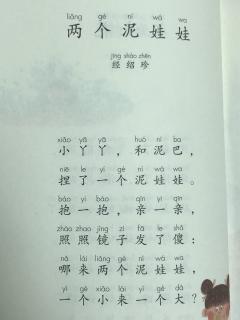 liǎng gè ní wá wa
两个泥娃娃
jīng shào zhēn
经绍珍
xiǎo yā yā huó ní ba
小丫丫，和泥巴，
niē le yí gè ní wá wa
捏了一个泥娃娃。
bào yí bào qīn yì qīn
抱一抱，亲一亲，
zhào zhao jìng zi fā le shǎ
照照镜子发了傻：
nǎ lái liǎng gè ní wá wa
哪来两个泥娃娃，
yí gè xiǎo lái yí gè dà
一个小来一个大？